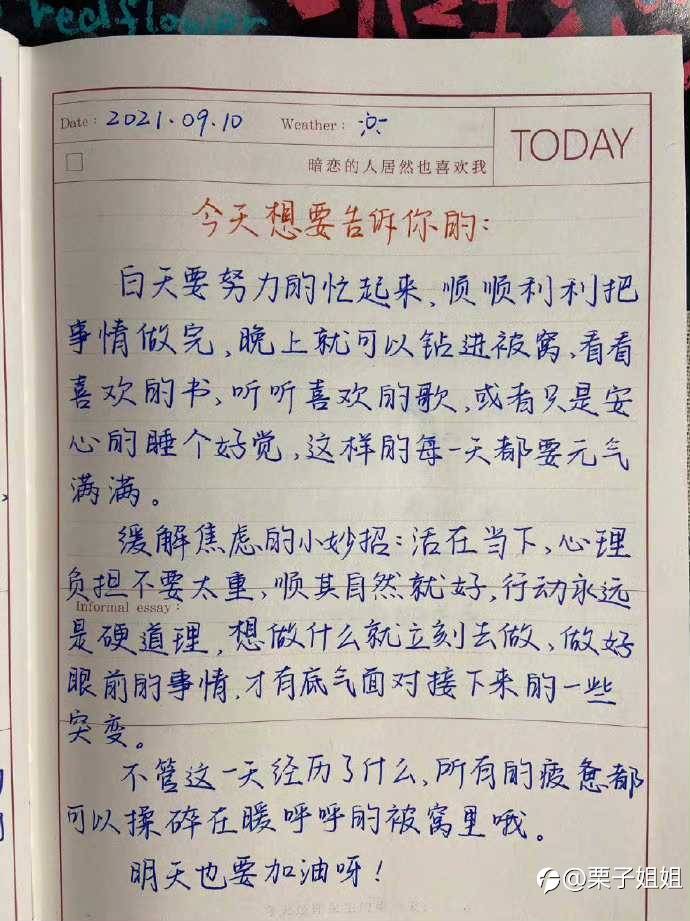 redflower
Date: 2021.09.10 Weather:
TODAY
暗恋的人居然也喜欢我
今天想要告诉你的:
白天要努力的忙起来,顺顺利利把
事情做完,晚上就可以钻进被窝,看看
喜欢的书,听听喜欢的歌,或者只是安
心的睡个好觉,这样的每一天都要元气
满满。
缓解焦虑的小妙招:活在当下,心理
负担不要太重,顺其自然就好,行动永远
Informal essay:
是硬道理,想做什么就立刻去做,做好
眼前的事情,才有底气面对接下来的一些
突变。
不管这一天经历了什么,所有的疲惫都
可以揉碎在暖呼呼的被窝里哦。
明天也要加油呀!
@栗子姐姐